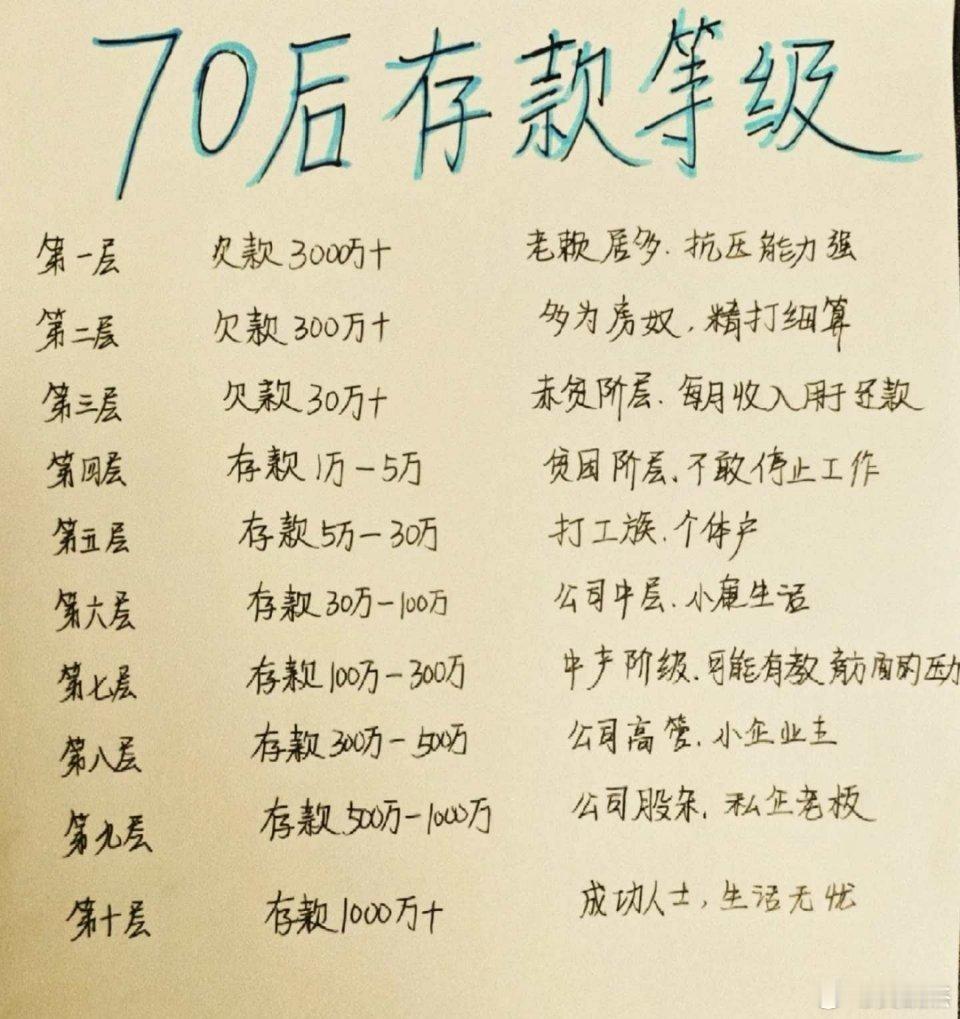 70后存款等级
第一层 欠款3000万+ 老赖居多.抗压能力强
第二层 欠款300万+ 多为房奴,精打细算
第三层 欠款30万+ 赤贫阶层.每月收入用于还款
第四层 存款1万-5万 贫困阶层.不敢停止工作
第五层 存款5万-30万 打工族.个体户
第六层 存款30万-100万 公司中层.小康生活
第七层 存款100万-300万 中产阶级.可能有教育方面的压力
第八层 存款300万-500万 公司高管.小企业主
第九层 存款500万-1000万 公司股东.私企老板
第十层 存款1000万+ 成功人士,生活无忧